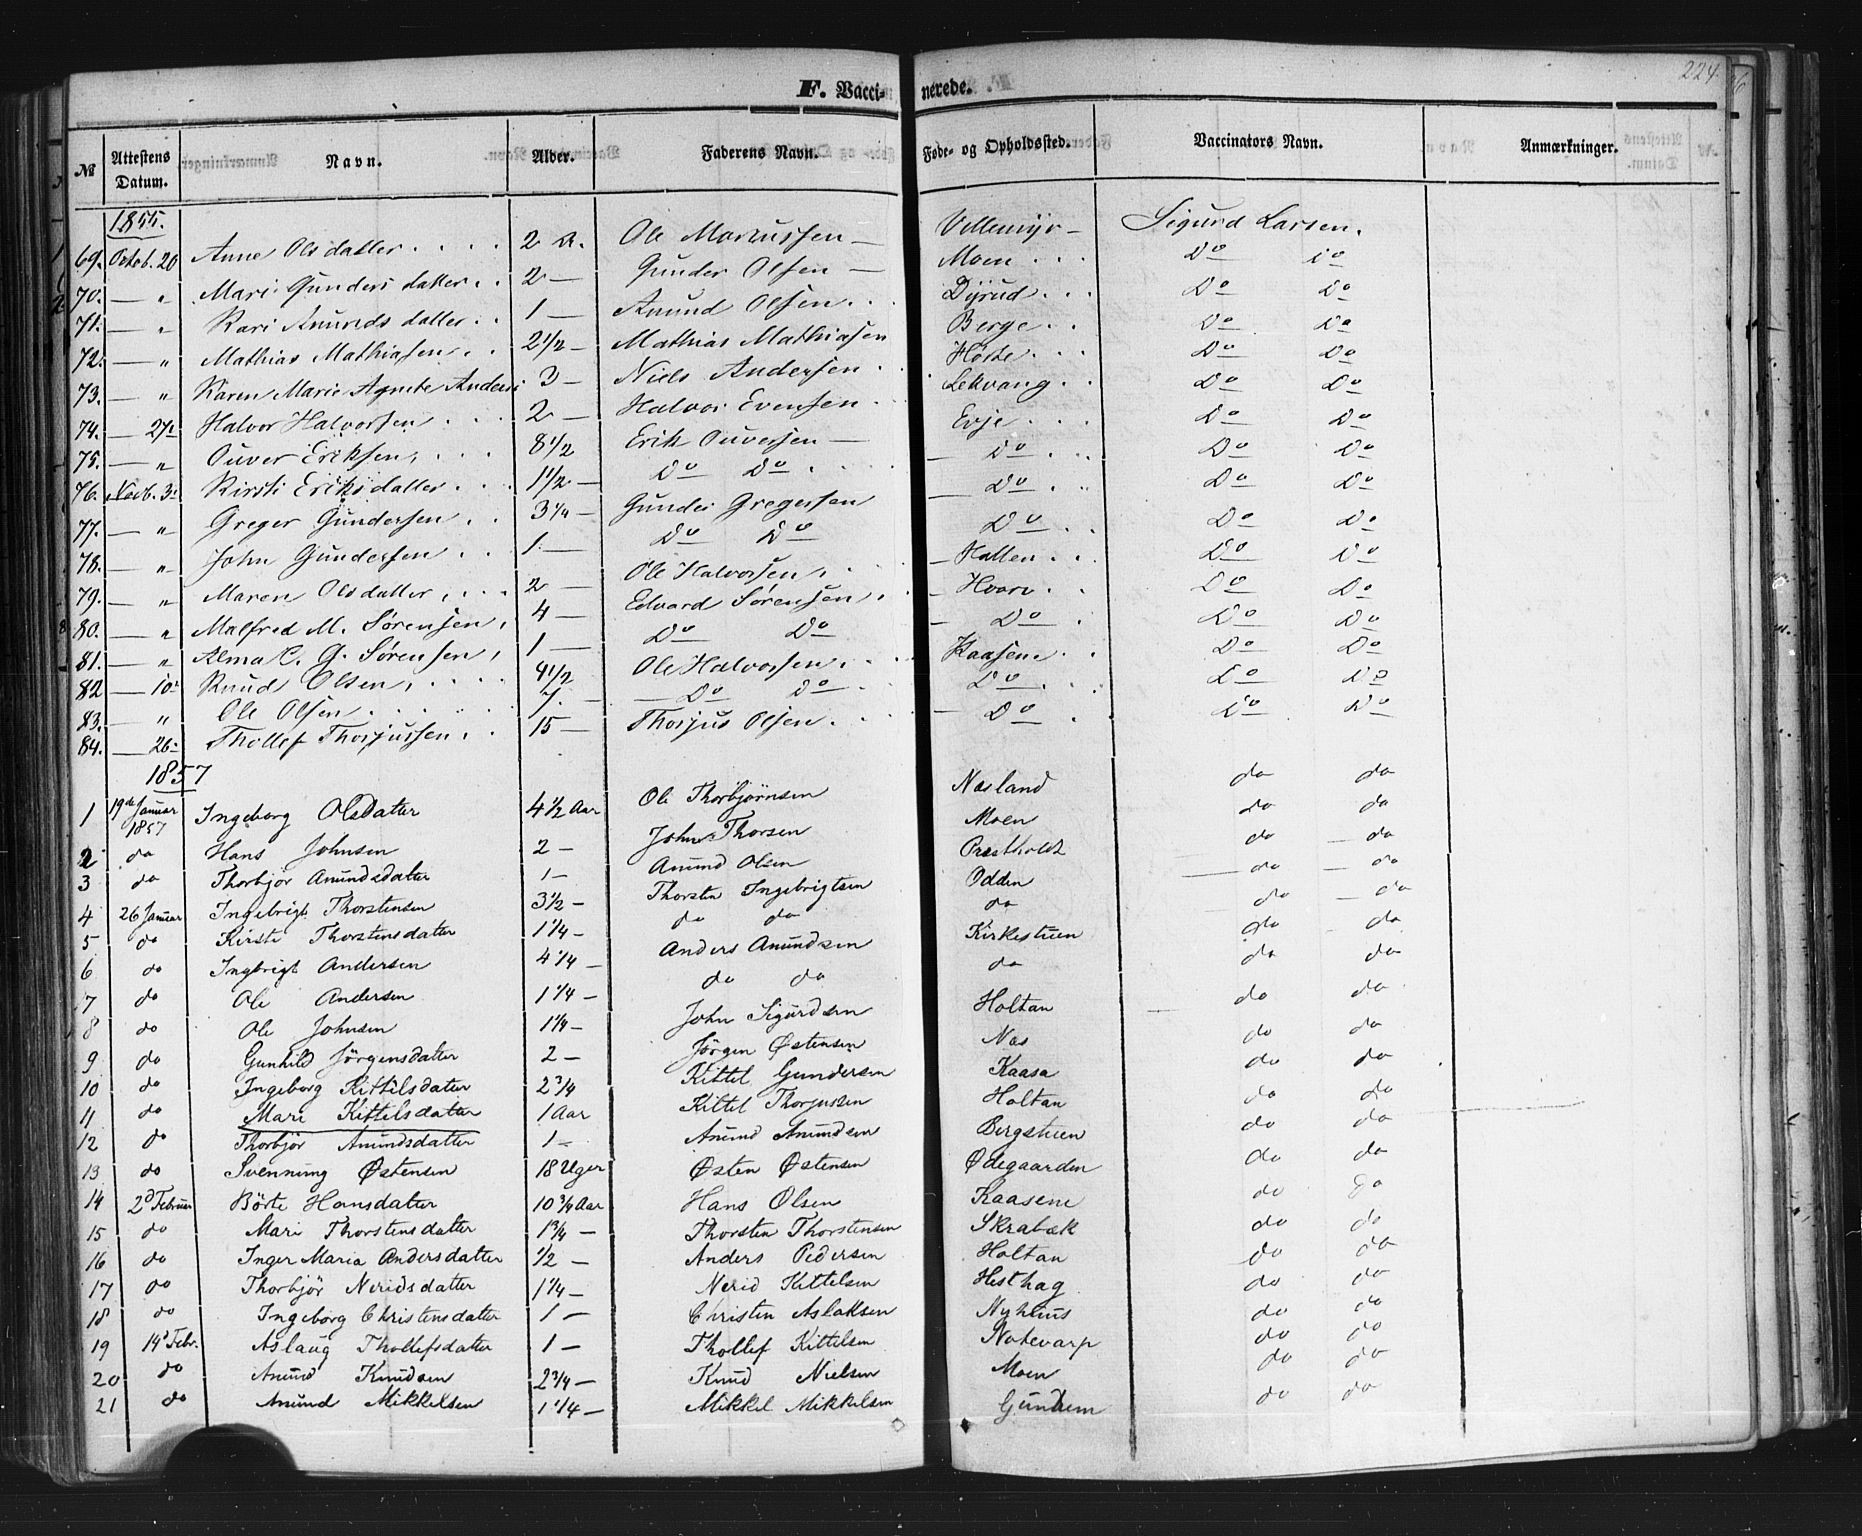 224.
F. Vaccinerede.
№ Attestens Datum. Navn. Alder. Faderens Navn. Føde- og Opholdssted. Vaccinators Navn. Anmærkninger.
1855.
69. Octob. 20 Anne Olsdatter 2 A. Ole Marcussen — Villemyr — Sigurd Larsen.
70. — " Mari Gundersdatter 2 — Gunder Olsen — Moen Do Do
71. — " Kari Anundsdatter 1 — Anund Olsen Dÿrud Do Do
72. — " Mathias Mathiasen 2 1/2 — Mathias Mathiasen Berge Do Do
73. — " Karen Marie Agnete Anders 3 — Niels Andersen Hørte Do Do
74. — 27: Halvor Halvorsen 2 — Halvor Evensen Lekvang Do Do
75. — " Ouver Eriksen 8 1/2 Erik Ouversen — Evje Do Do
76. Novb. 3: Kirsti Eriksdatter 1 1/2 — Do Do — Do Do Do
77. — " Greger Gundersen 3 1/4 — Gunder Gregersen — Do Do Do
78. — " John Gundersen 1 — Do Do Do Do Do
79. — " Maren Olsdatter 2 — Ole Halvorsen — Hatten Do Do
80. — " Malfred M. Sørensen 4 — Edvard Sørensen — Do Do
81. — " Alma C. G. Sørensen 1 — Do Do — Do Do Do
82 — 10: Knud Olsen 4 1/2 Ole Halvorsen Kaasene Do Do
83. — " Ole Olsen 7. — Do Do Do Do Do
84. — 26: Thollef Thorjussen 15 — Thorjus Olsen — Do Do Do
1857
1 19de Januar 1857 Ingeborg Olsdatter 4 1/2 Aar Ole Thorbjørnsen Næsland do do
2 do Hans Johnsen 2 — John Thorsen Moen do do
3 do Thorbjør Anundsdatter 1 — Anund Olsen Præstholdt do — do
4 26 Januar Ingebrigt Thorstensen 3 1/2 — Thorsten Ingebrigtsen Odden — do — do
5 do Kirste Thorstensdatter 1 1/4 — do do do do — do
6 do Ingbrigt Andersen 4 1/4 — Anders Anundsen Kirkestuen do do
7 do Ole Andersen 1 1/4 — do do do do do
8 do Ole Johnsen 1 1/4 — John Sigurdsen Holtan do do
9 do Gunhild Jørgensdatter 2 — Jørgen Østensen Næs do do
10 do Ingeborg Kittilsdatter 2 3/4 Kittel Gundersen Kaasa do do
11 do Mari Kittelsdatter 1 Aar Kittel Thorjussen Holtan do do
12 do Thorbjør Anundsdatter 1 — Anund Anundsen Bergstuen do do
13 do Svennung Østensen 18 Uger Østen Østensen Ødegaarden do do
14 2d Februar Börte Hansdatter 10 3/4 Aar Hans Olsen Kaasene do do
15 do Mari Thorstensdatter 1 3/4 — Thorsten Thorstensen Skrabæk do do
16 do Inger Maria Andersdatter 1/2 — Anders Pedersen Holtan do do
17 do Thorbjør Neridsdatter 1 1/4 — Nerid Kittelsen Hesthag do do
18 do Ingeborg Christensdatter 1 — Christen Aslaksen Nyhuus do do
19 14d Febr. Aslaug Thollefsdatter 1 — Thollef Kittelsen Notevarp do do
20 do Anund Knudsen 2 3/4 — Knud Nielsen Moen do do
21 do Anund Mikkelsen 1 1/4 — Mikkel Mikkelsen do do